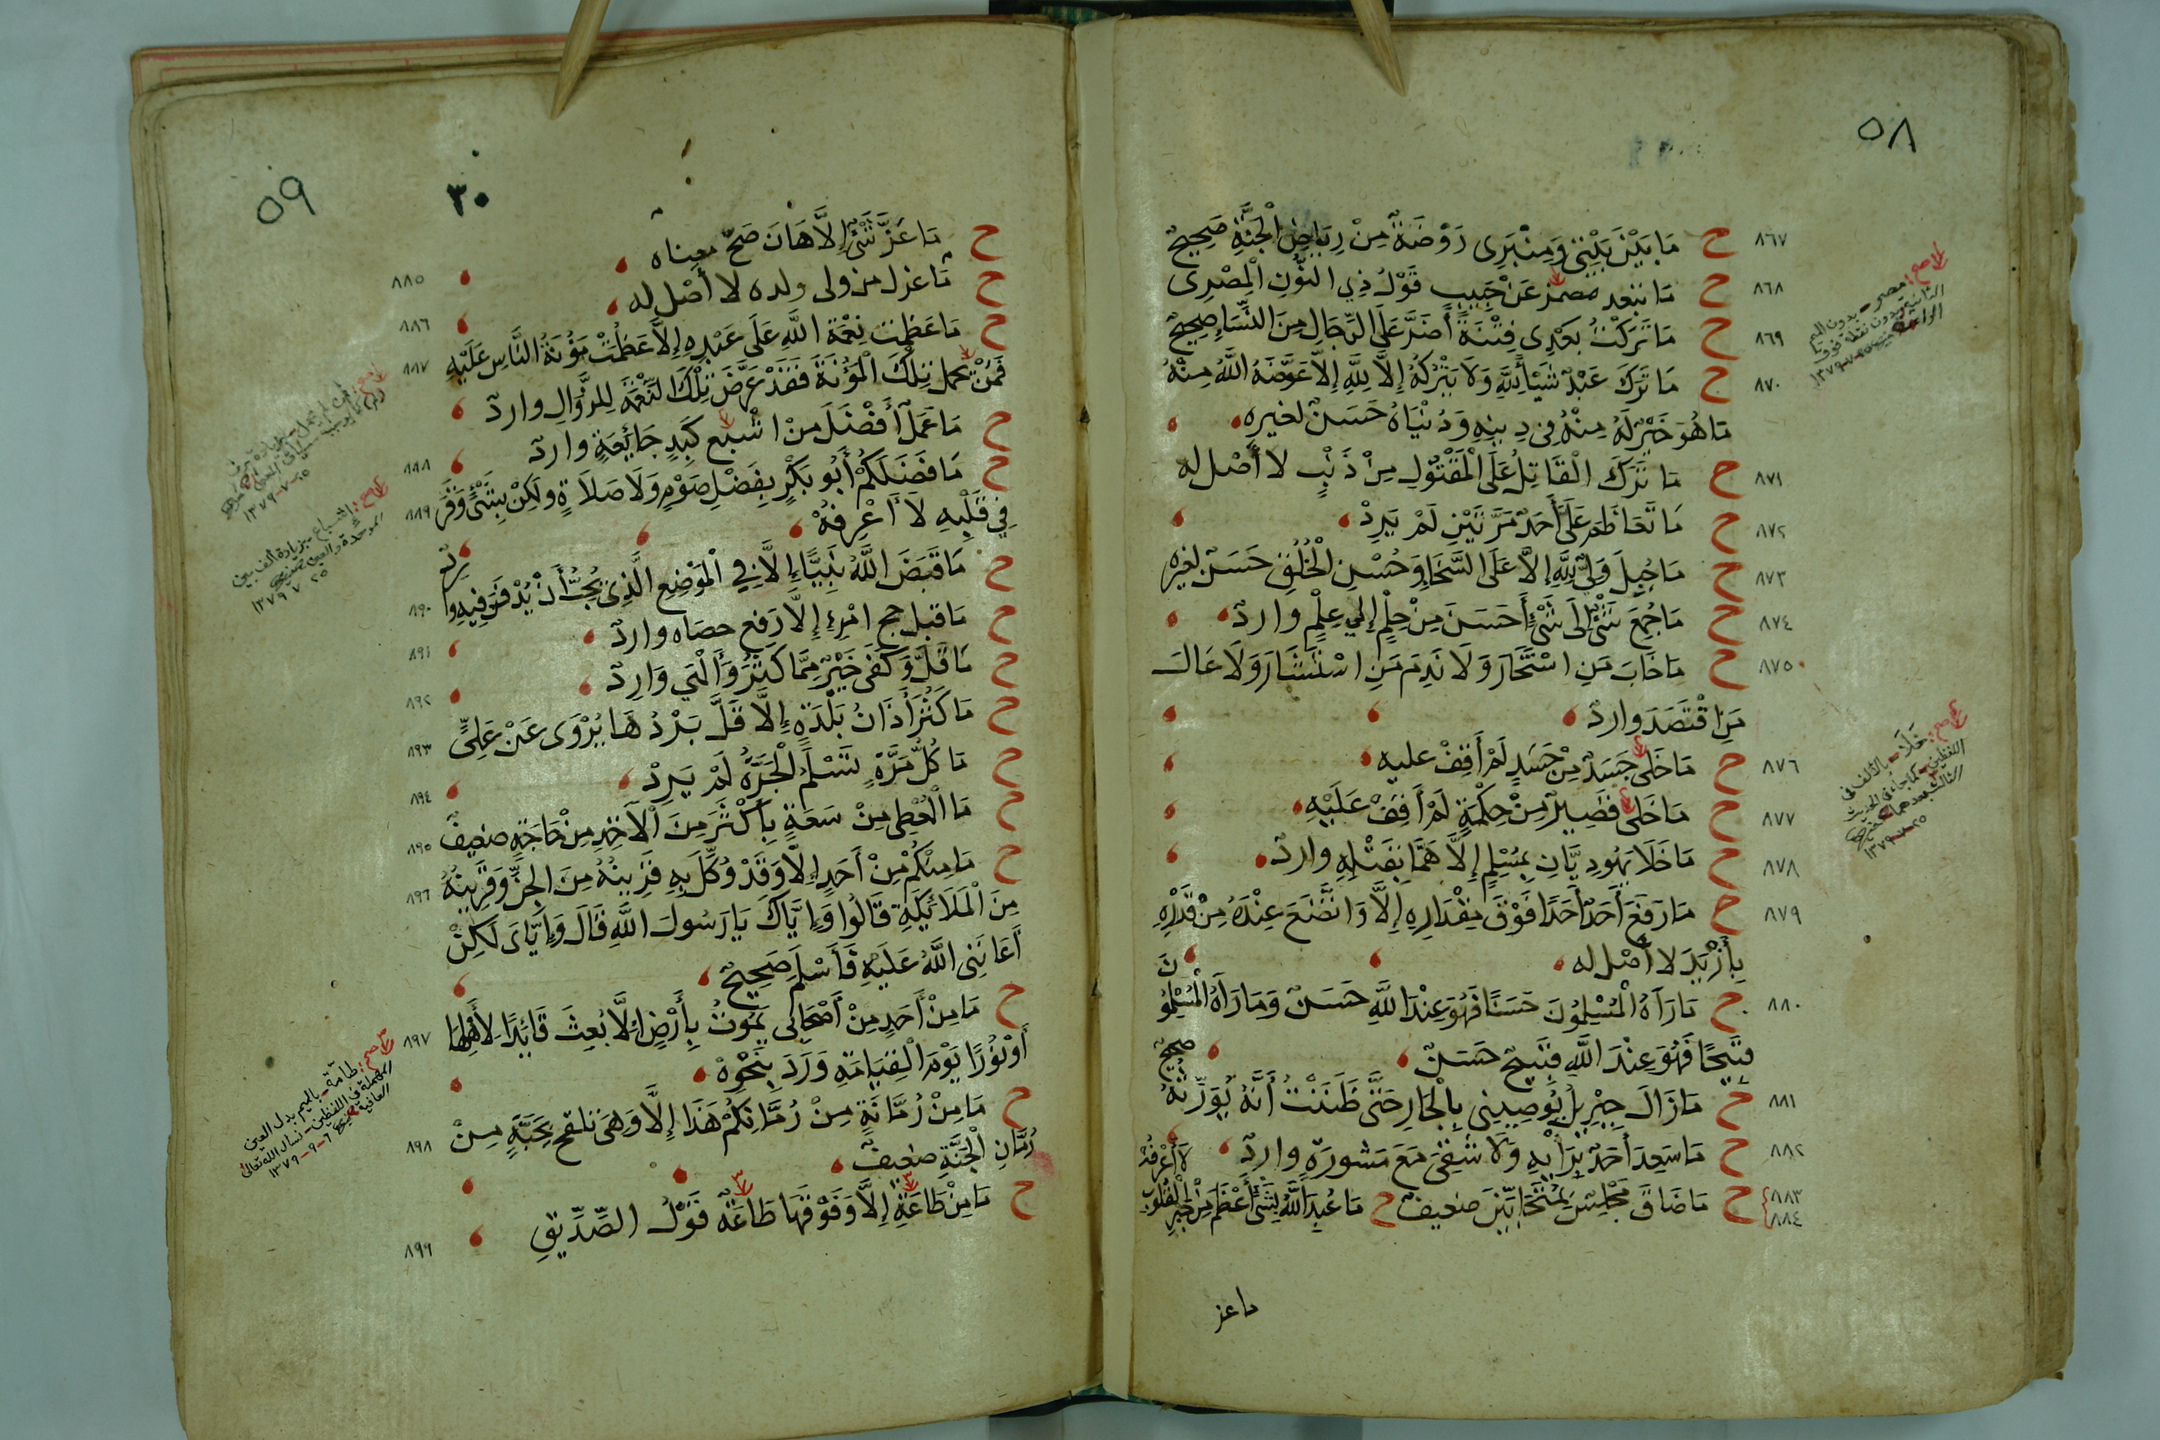 ٥٨
٨٦٧ ح مَا بَيْنَ بَيْتِي وَمِنْبَرِى رَوْضَةٌ مِنْ رِيَاضِ الْجَنَّةِ صَحِيحٌ
٨٦٨ ح مَا تبعد مصمر عَنْ حَبِيبٍ قَوْلُ ذِي النُّونِ الْمِصْرِى
٨٦٩ ح مَا تَرَكْتُ بَعْدِى فِتْنَةً أَضَرَّ عَلَى الرِّجَالِ مِنَ النِّسَاءِ صَحِيحٌ
٨٧٠ ح مَا تَرَكَ عَبْدٌ شَيْأً لِلَّهِ وَلَا يَتْرُكُهُ إِلَّا لِلَّهِ إِلَّا عَوَّضَهُ اللَّهُ مِنْهُ
مَا هُوَ خَيْرٌ لَهُ مِنْهُ فِى دِينِهِ وَدُنْيَاهُ حَسَنٌ لغيرِهِ
٨٧١ ح مَا تَرَكَ الْقَاتِلُ عَلَى الْمَقْتُولِ مِنْ ذَنْبٍ لَا أَصْلَ له
٨٧٢ ح مَا تَعَاظَمَ عَلَى أَحَدٍ مَرَّتَيْنِ لَمْ يَرِدْ
٨٧٣ ح مَا جُبِلَ وَلِيٌّ لِلَّهِ إِلَّا عَلَى السَّخَاءِ وَحُسْنِ الْخُلُقِ حَسَنٌ لغيره
٨٧٤ ح مَا جُمِعَ شَىْءٌ إِلَى شَىْءٍ أَحَسَنَ مِنْ حِلْمٍ إِلَي عِلْمٍ واردٌ
٨٧٥ ح مَا خَابَ مَنِ اسْتَخَارَ وَلَا نَدِمَ مَنِ اسْتَشَارَ وَلَا عَالَ
مَنِ اقْتَصَدَ واردٌ
٨٧٦ ح مَا خَلَى جَسَدٌ مِنْ حَسَدٍ لَمْ أَقِفْ عليه
٨٧٧ ح مَا خَلَى قَصِيرٌ مِنْ حِكْمَةٍ لَمْ أَقِفْ عَلَيْهِ
٨٧٨ ح مَا خَلَا يَهُودِيَّانِ بِمُسْلِمٍ إِلَّا هَمَّا بِقَتْلِهِ واردٌ
٨٧٩ ح مَا رَفَعَ أَحَدٌ أَحَدًا فَوْقَ مِقْدَارِهِ إِلَّا وَاتَّضَعَ عِنْدَهُ مِنْ قَدْرِهِ
بِأَزْيَدَ لَا أَصْلَ له
٨٨٠ ح مَا رَآهُ الْمُسْلِمُونَ حَسَنًا فَهُوَ عِنْدَ اللَّهِ حَسَنٌ وَمَا رَآهُ الْمُسْلِمُونَ
قَبِيْحًا فَهُوَ عِنْدَ اللَّهِ قَبِيحٌ حَسَنٌ
٨٨١ ح مَا زَالَ جِبْرِيلُ يُوصِينِي بِالْجَارِ حَتَّى ظَنَنْتُ أَنَّهُ يُوَرِّثُهُ صحيحٌ
٨٨٢ ح مَا سَعِدَ أَحَدٌ بِرَأْيِهِ وَلَا شَقِىَ مَعَ مَشورَةٍ واردٌ
٨٨٣ ح مَا ضَاقَ مَجْلِسٌ بِمُتَحَابَّيْنَ ضعيفٌ
٨٨٤ ح مَا عُبِدَ اللَّهُ بِشَىْءٍ أَعْظَمَ مِنْ جَبْرِ الْقُلُوبِ لَا أَعْرِفُهُ
ما عز
صح: مصر - بدون الميم
صح: خَلَا - بالألف فى
اللفظين - كما جاء فى الحديث
الثالث بعدهما
٢٥-٧-١٣٧٩
٥٩
٣٠
ح مَا عَزَّ شَىْءٌ إِلَّا هَانَ صَحَّ معناه
٨٨٥ ح مَا عزل من ولى ولده لا أَصْلَ له
٨٨٦ ح مَا عَظُمَت نِعْمَةُ اللَّهِ عَلَى عَبْدِهِ إِلَّا عَظُمَتْ مَؤُنَةُ النَّاسِ عَلَيْهِ
٨٨٧ فَمَنْ يحمل تِلْكَ الْمَؤُنَةَ فَقَدْ عَرَّضَ تِلْكَ النِّعْمَةَ لِلزَّوَالِ واردٌ
ح مَا عَمَلٌ أَفْضَلَ مِنْ اشبع كَبِدٍ جَائِعَةٍ واردٌ
٨٨٨ ح مَا فَضَلَكُمْ أَبُو بَكْرٍ بِفَضْلِ صَوْمٍ وَلَا صَلَاةٍ ولَكِنْ بِشَىْءٍ وَقَرَ
٨٨٩ فِي قَلْبِهِ لَا أَعْرِفُهُ
ح مَا قَبَضَ اللَّهُ نَبِيًّا إِلَّا فِي الْمَوْضِعِ الَّذِى يُحِبُّ أَنْ يُدْفَنَ فِيهِ واردٌ
٨٩٠ ح مَا قبل حج امْرِءٍ إِلَّا رَفع حصاه واردٌ
٨٩١ ح مَا قَلَّ وَكَفَى خَيْرٌ مِمَّا كَثُرَ وَأَلْهَي وَارِدٌ
٨٩٢ ح مَا كَثُرَ أَذَانُ بَلْدَةٍ إِلَّا قَلَّ بَرْدُهَا يُرْوَى عَنْ عَلِىٍّ
٨٩٣ ح مَا كُلُّ مَرَّةٍ تَسْلَمُ الْجَرَّةُ لَمْ يَرِدْ
٨٩٤ ح مَا الْمُعْطِى مِنْ سَعَةٍ بِأَكْثَرَ مِنَ الْآخِذِ مِنْ حَاجَةٍ ضعيفٌ
٨٩٥ ح مَا مِنْكُمْ مِنْ أَحَدٍ إِلَّا وَقَدْ وُكِّلَ بِهِ قَرِينُهُ مِنَ الجِنِّ وَقَرِينُهُ
٨٩٦ مِنَ الْمَلَائِكَةِ قَالُوا وَإِيَّاكَ يَا رَسُولَ اللَّهِ قَالَ وَإِيَّاىَ لَكِنْ
أَعَانَنِى اللَّهُ عَلَيْهِ فَأَسْلَمَ صَحِيحٌ
ح مَا مِنْ أَحَدٍ مِنْ أَصْحَابِي يَمُوتُ بِأَرْضٍ إِلَّا بُعِثَ قَائِدًا لِأَهْلِهَا
٨٩٧ أَوْ نُورًا يَوْمَ الْقِيَامَةِ وَرَدَ بِنَحْوِهْ
ح مَا مِنْ رُمَّانَةٍ مِنْ رُمَّانِكُمْ هَذَا إِلَّا وَهِىَ تلقح بِحَبَّةٍ مِنْ
٨٩٨ رُمَّانِ الْجَنَّةِ ضعيفٌ
ح مَا مِنْ طَاعَةٍ إِلَّا وَفَوْقَهَا طَاعَةٌ قَوْلُ الصِّدِّيقِ
٨٩٩
صح: اشباع - بزيادة ألف بين
الموحدة والعين
٢٥-٧-١٣٧٩
صح: طامّة - بالميم بدل العين
المهملة فى اللفظين - نسأل الله تعالى
العافية
٦-٩-١٣٧٩